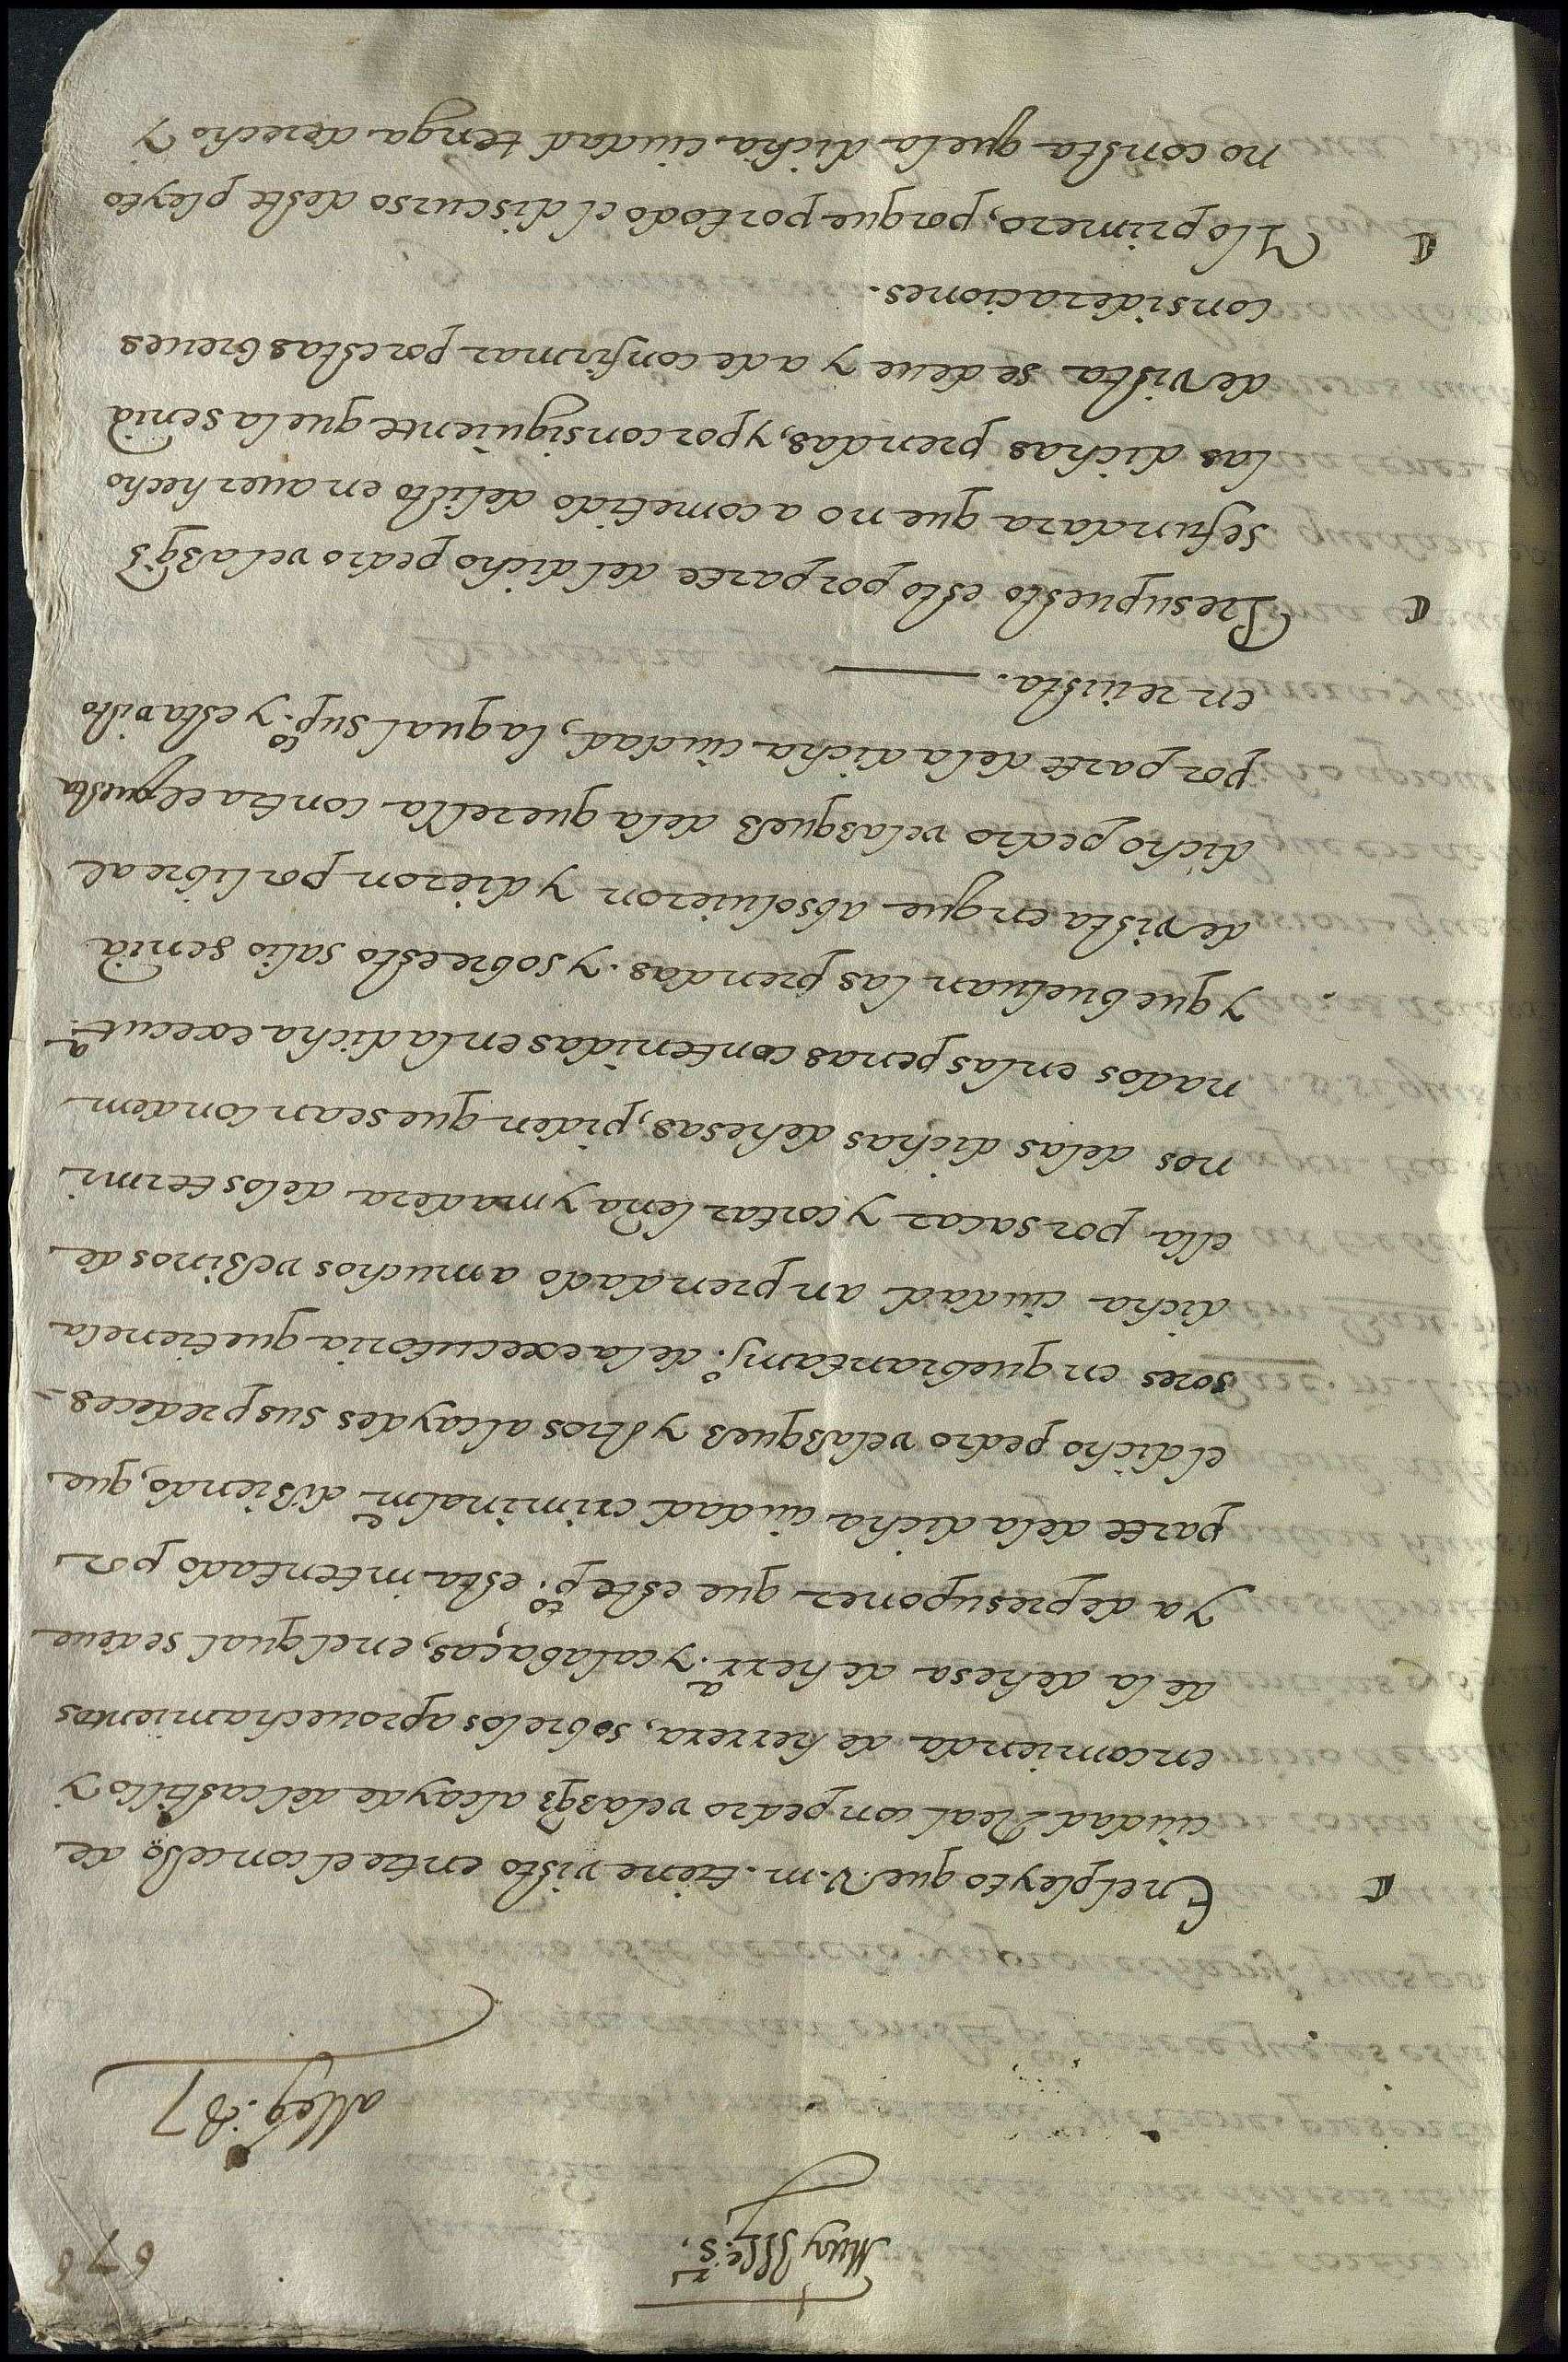 678
Muy Ill.e s.r
alleg.
En el pleyto que V.m. tiene visto entre el concejo de
ciudad Real con pedro velasqz alcayde del castillo y
encomienda de herrera, sobre los aprouechamientos
de la dehesa de herr.a y calabaças, en el qual se deue
y a de presuponer que este p.to esta intentado por
parte de la dicha ciudad criminalm.e diziendo, que
el dicho pedro velasquez y otros alcaydes sus predeces-
sores en quebrantamj.o de la executoria que tiene la
dicha ciudad an prendado a muchos vezinos de
ella por sacar y cortar leña y madera de los termi
nos de las dichas dehesas, piden que sean conden
nados en las penas contenidas en la dicha execut.a
y que bueluan las prendas. y sobre esto salio senia
de vista en que absoluieron y dieron por libre al
dicho pedro velasquez de la querella contra el puesta
por parte de la dicha ciudad, la qual sup.co y esta visto
en reuista.
Presupuesto esto por parte del dicho pedro velasqz
se fundara que no a cometido delicto en auer hecho
las dichas prendas, y por consiguiente que la senia
de vista se deue y a de confirmar por estas breues
consideraciones.
Y lo primero, porque por todo el discurso deste pleyto
no consta que la dicha ciudad tenga derecho y